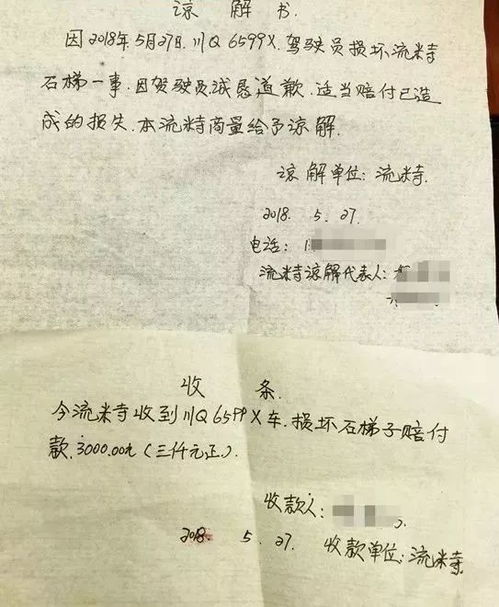 谅解书
因2018年5月27日.川Q 6599X.驾驶员损坏流米寺
石梯一事.因驾驶员诚恳道歉.适当赔付已造
成的损失.本流米寺商量给予谅解.
谅解单位:流米寺.
2018. 5. 27.
电话:
流米寺谅解代表人:
收条.
今流米寺收到川Q6599X车.损坏石梯子赔付
款.3000.00元(三仟元正).
收款人:
2018. 5. 27. 收款单位:流米寺.